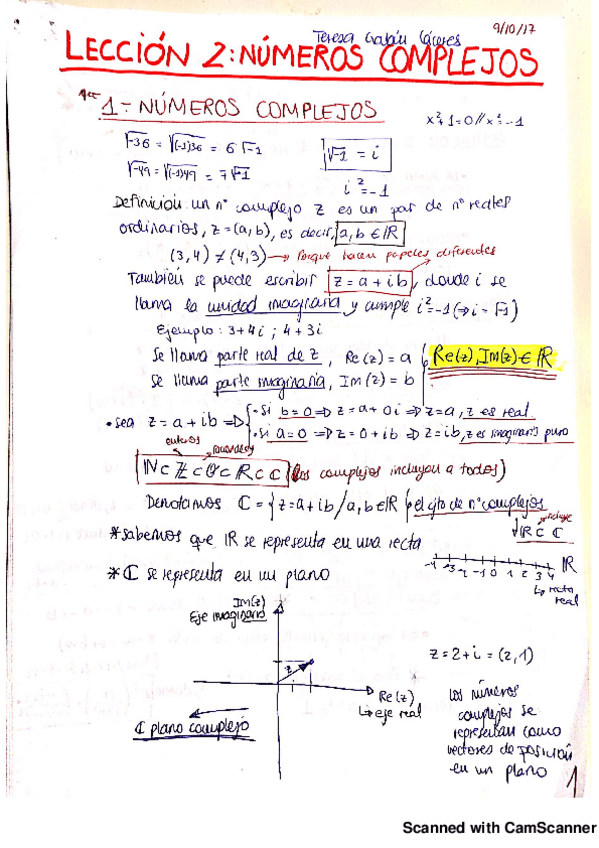 Teresa Galán Cáceres
9/10/17
LECCIÓN 2: NÚMEROS COMPLEJOS
1- NÚMEROS COMPLEJOS
x²+1=0 // x²=-1
√-36 = √(-1)36 = 6√-1
√-1 = i
√-49 = √(-1)49 = 7√-1
i²=-1
Definición: un nº complejo z es un par de nº reales
ordinarios, z=(a,b), es decir, a,b ∈ ℝ
(3,4) ≠ (4,3) → Porque hacen papeles diferentes
También se puede escribir z=a+ib, donde i se
llama la unidad imaginaria y cumple i²=-1 (⇒ i=√-1)
Ejemplo: 3+4i ; 4+3i
Se llama parte real de z, Re(z)=a
Se llama parte imaginaria, Im(z)=b
Re(z), Im(z) ∈ ℝ
• sea z=a+ib ⇒ • Si b=0 ⇒ z=a+0i ⇒ z=a, z es real
• Si a=0 ⇒ z=0+ib ⇒ z=ib, z es imaginario puro
enteros
ℕ⊂ℤ⊂ℚ⊂ℝ⊂ℂ (los complejos incluyen a todos)
Denotamos ℂ={z=a+ib/a,b∈ℝ} el cjto de nº complejos
incluye
ℝ⊂ℂ
*sabemos que ℝ se representa en una recta
-4 -3 -2 -1 0 1 2 3 4
ℝ
↳ recta
real
*ℂ se representa en un plano
Im(z)
Eje imaginario
z
z=2+i=(2,1)
Re(z)
↳ eje real
ℂ plano complejo
Los números
complejos se
representan como
vectores de posición
en un plano
1
Scanned with CamScanner